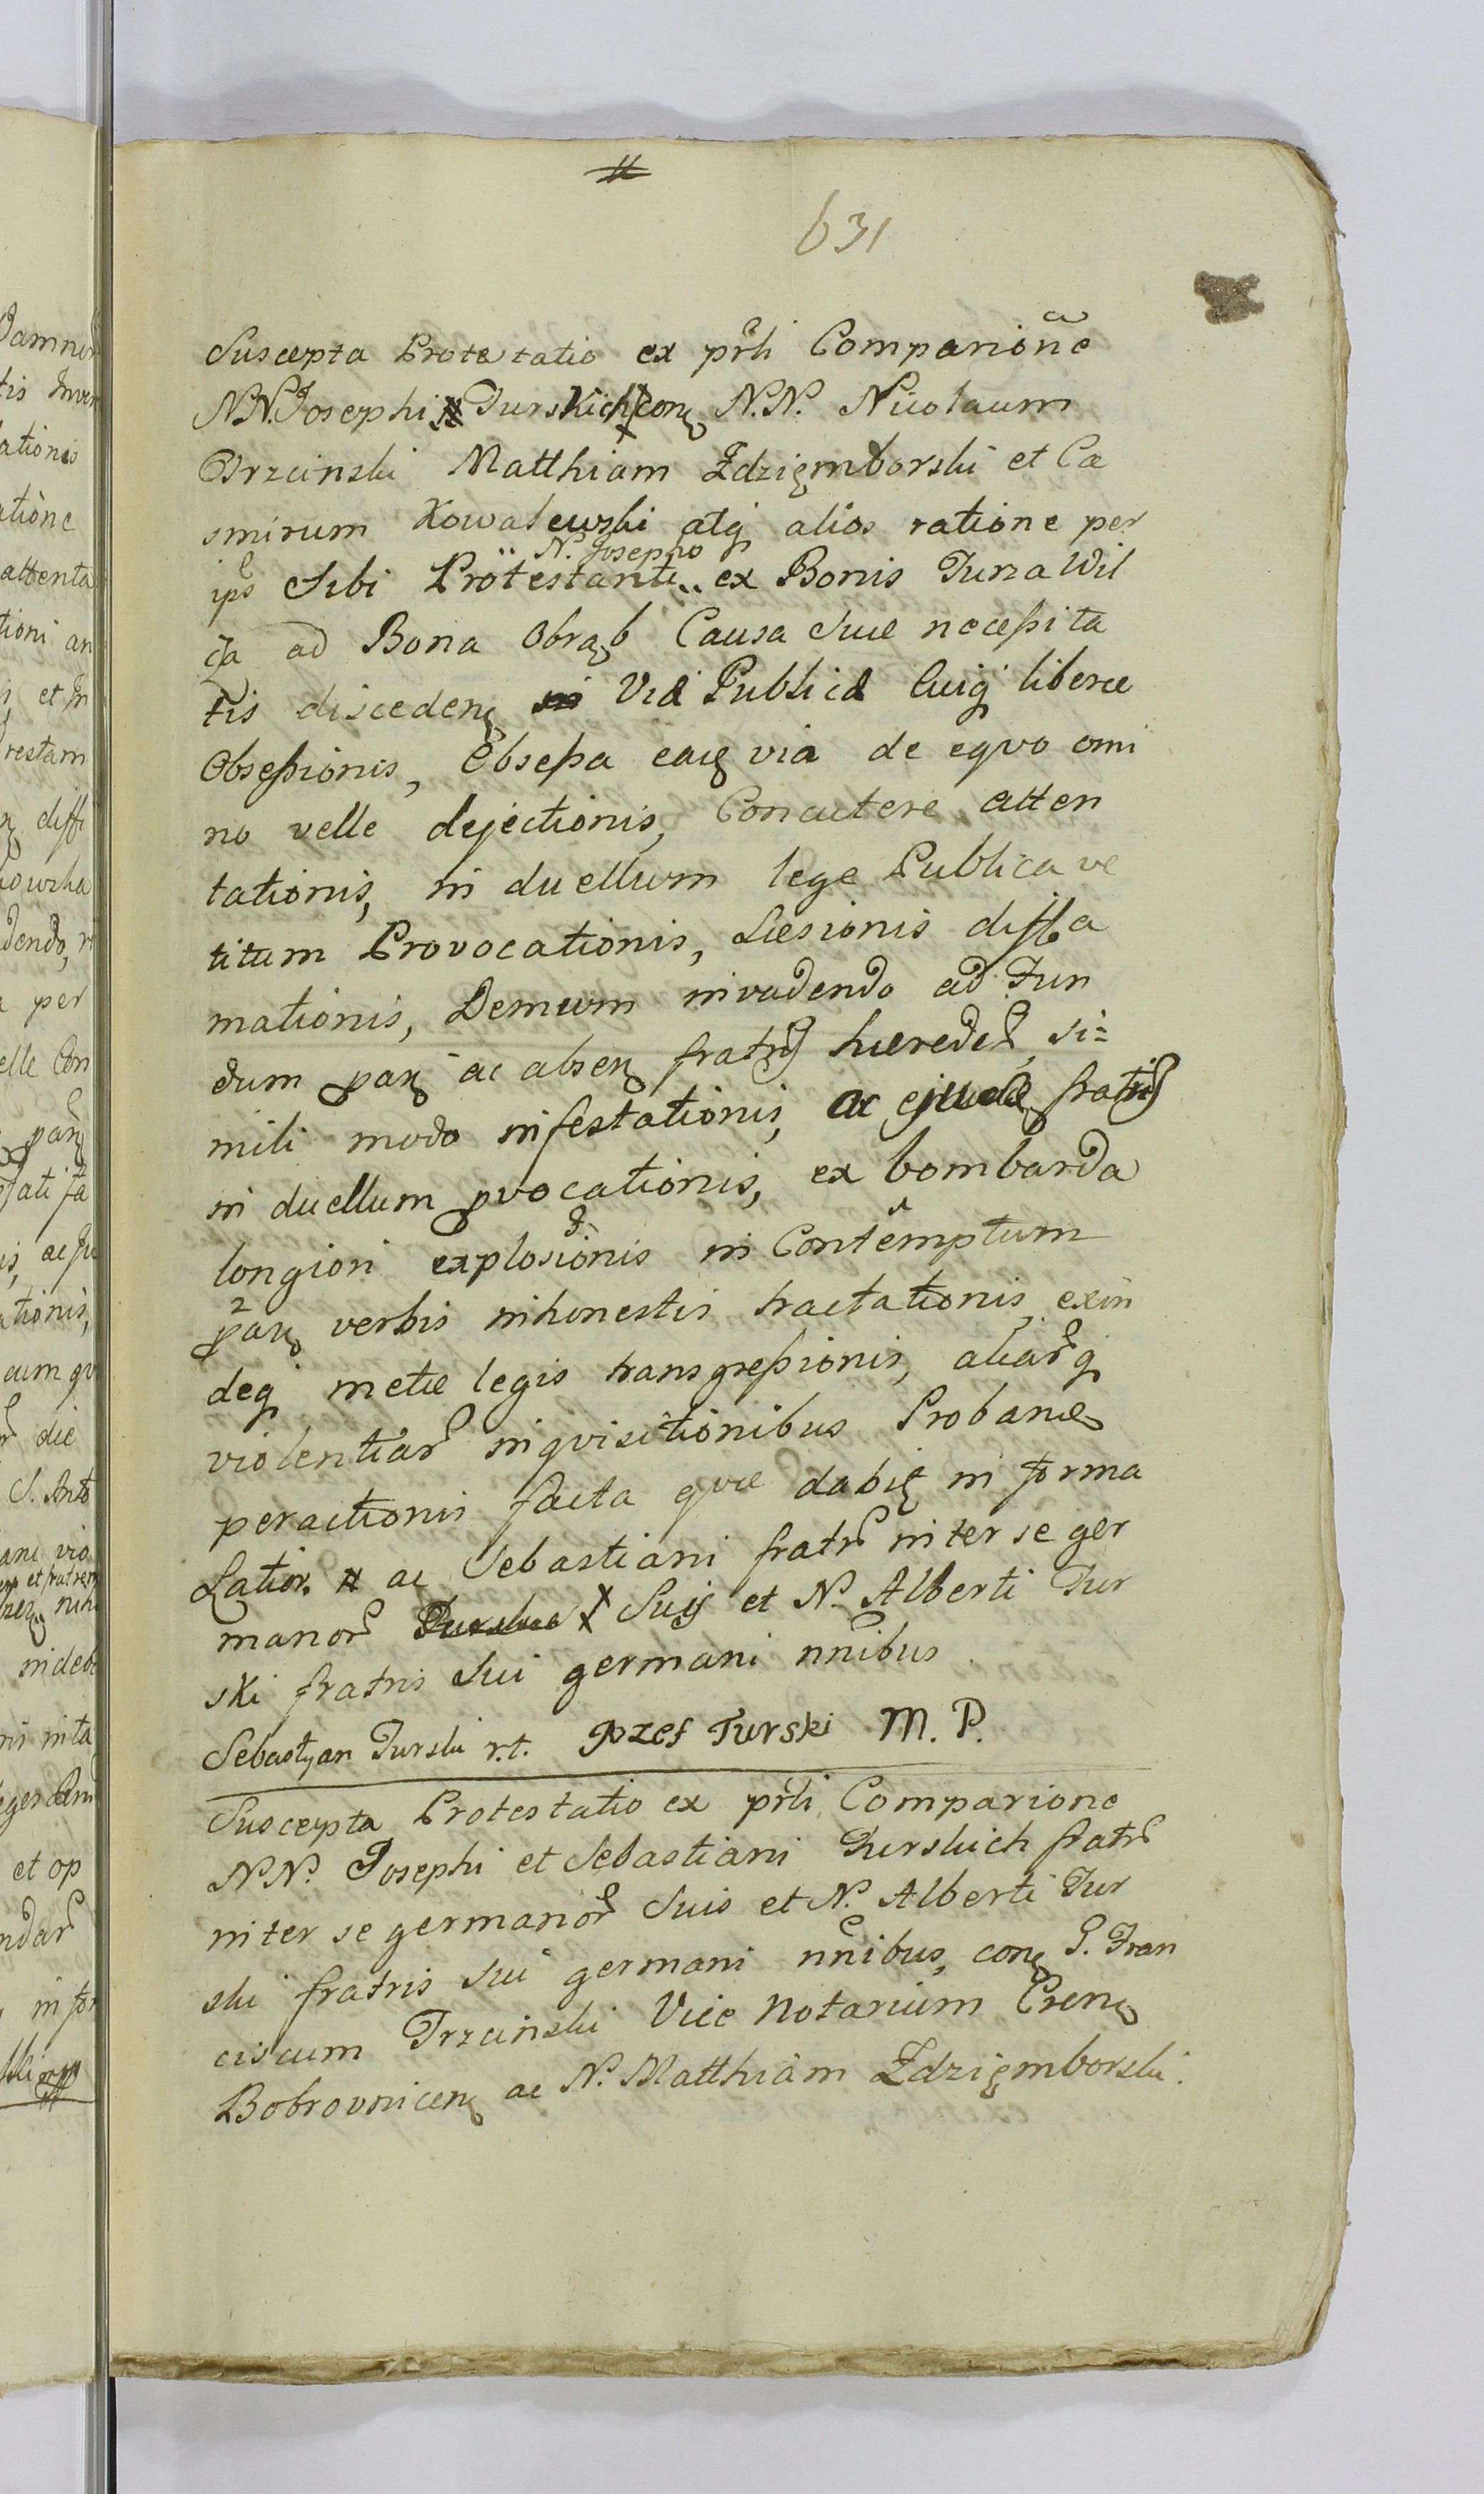 631
Suscepta Protestatio ex prsti Comparione
NN. Josephi Turskich con N.N. Nicolaum
Trzcinski Matthiam Zdzięmborski et Ca
smirum Kowalewski atq alios ratione per
N. Josepho
ips Sibi Protestanti ex Bonis Turza Wil
cza ad Bona Obrąb Causa Suæ necessita
tis disceden Via Publica Cuiq liberæ
Obsessionis, Obsessa eaq via de eqvo omi
no velle dejectionis, Concutere atten
tationis, in duellum lege Publica ve
titum Provocationis, Læsionis diffa
mationis, Demum invadendo ad Fun
dum par ac absen fratris hæredes, si=
mili modo infestationis, ac ejusde fratris
in duellum provocationis, ex bombarda
longiori explosionis in Contemptum
par verbis inhonestis tractationis exin
deq metæ legis transgressionis, aliarq
violentiar inqvisitionibus Probanæ
peractionis facta qvæ dabit in forma
Latior. # ac Sebastiani fratr inter se ger
manor Suis et N. Alberti Tur
ski fratris Sui germani nnibus
Sebastyan Turski r.t. Jozef Turski M. P.
Suscepta Protestatio ex prsti Comparione
NN. Josephi et Sebastiani Turskich fratr
inter se germanor Suis et N. Alberti Tur
ski fratris Sui germani nnibus, con G. Fran
ciscum Trzcinski Vice Notarium Cren
Bobrovnicen ac N. Matthiam Zdzięmborski.